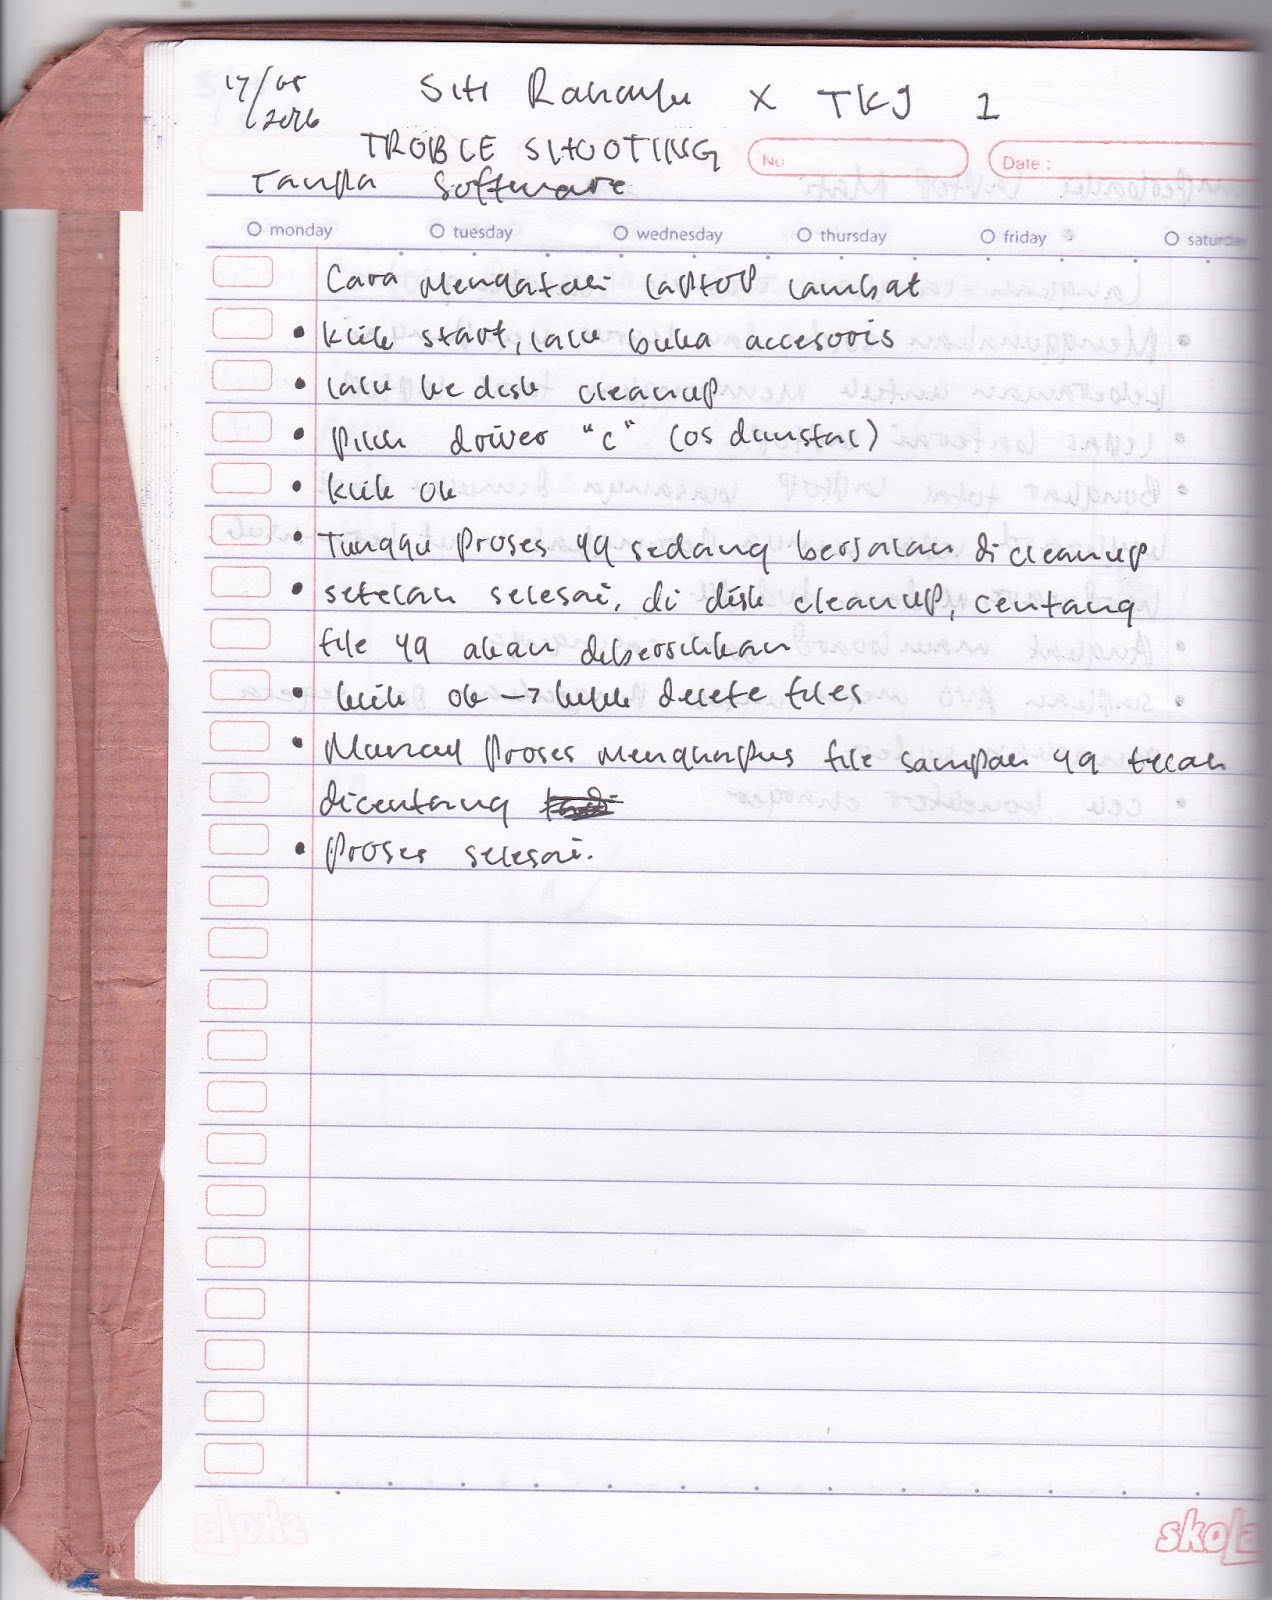 17/05
/2016
Siti Rahayu X TKJ 1
TROBLE SHOOTING
Tanpa Software
No
Date :
monday tuesday wednesday thursday friday saturday
Cara Mengatasi laptop lambat
• klik start, lalu buka accesoris
• lalu ke disk cleanup
• Pilih driver "c" (os diinstal)
• klik ok
• Tunggu Proses yg sedang berjalan di cleanup
• setelah selesai, di disk cleanup, centang
file yg akan dibersihkan
• klik ok → klik delete files
• Muncul Proses menghapus file sampah yg telah
dicentang
• Proses selesai.
skola